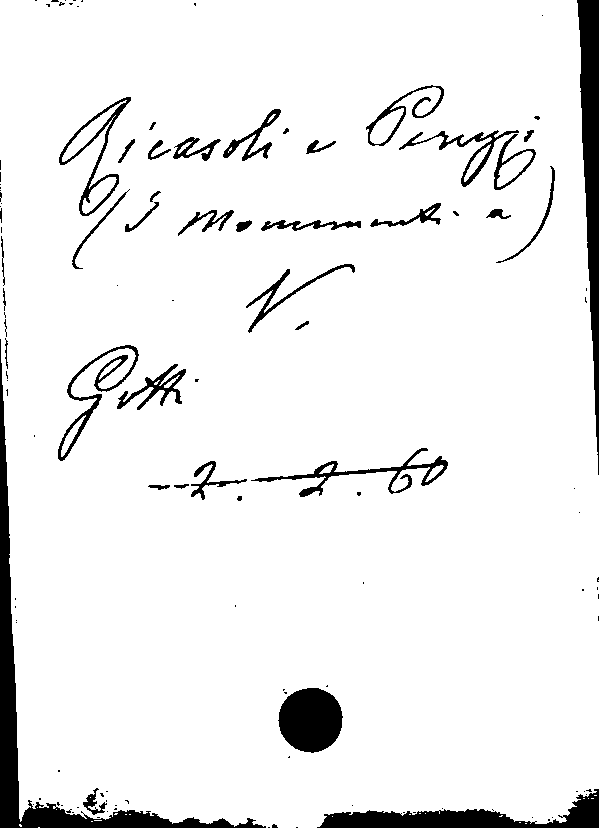 Ricasoli e Peruzzi
(I monumenti a)
V.
Gotti
2. 2. 60